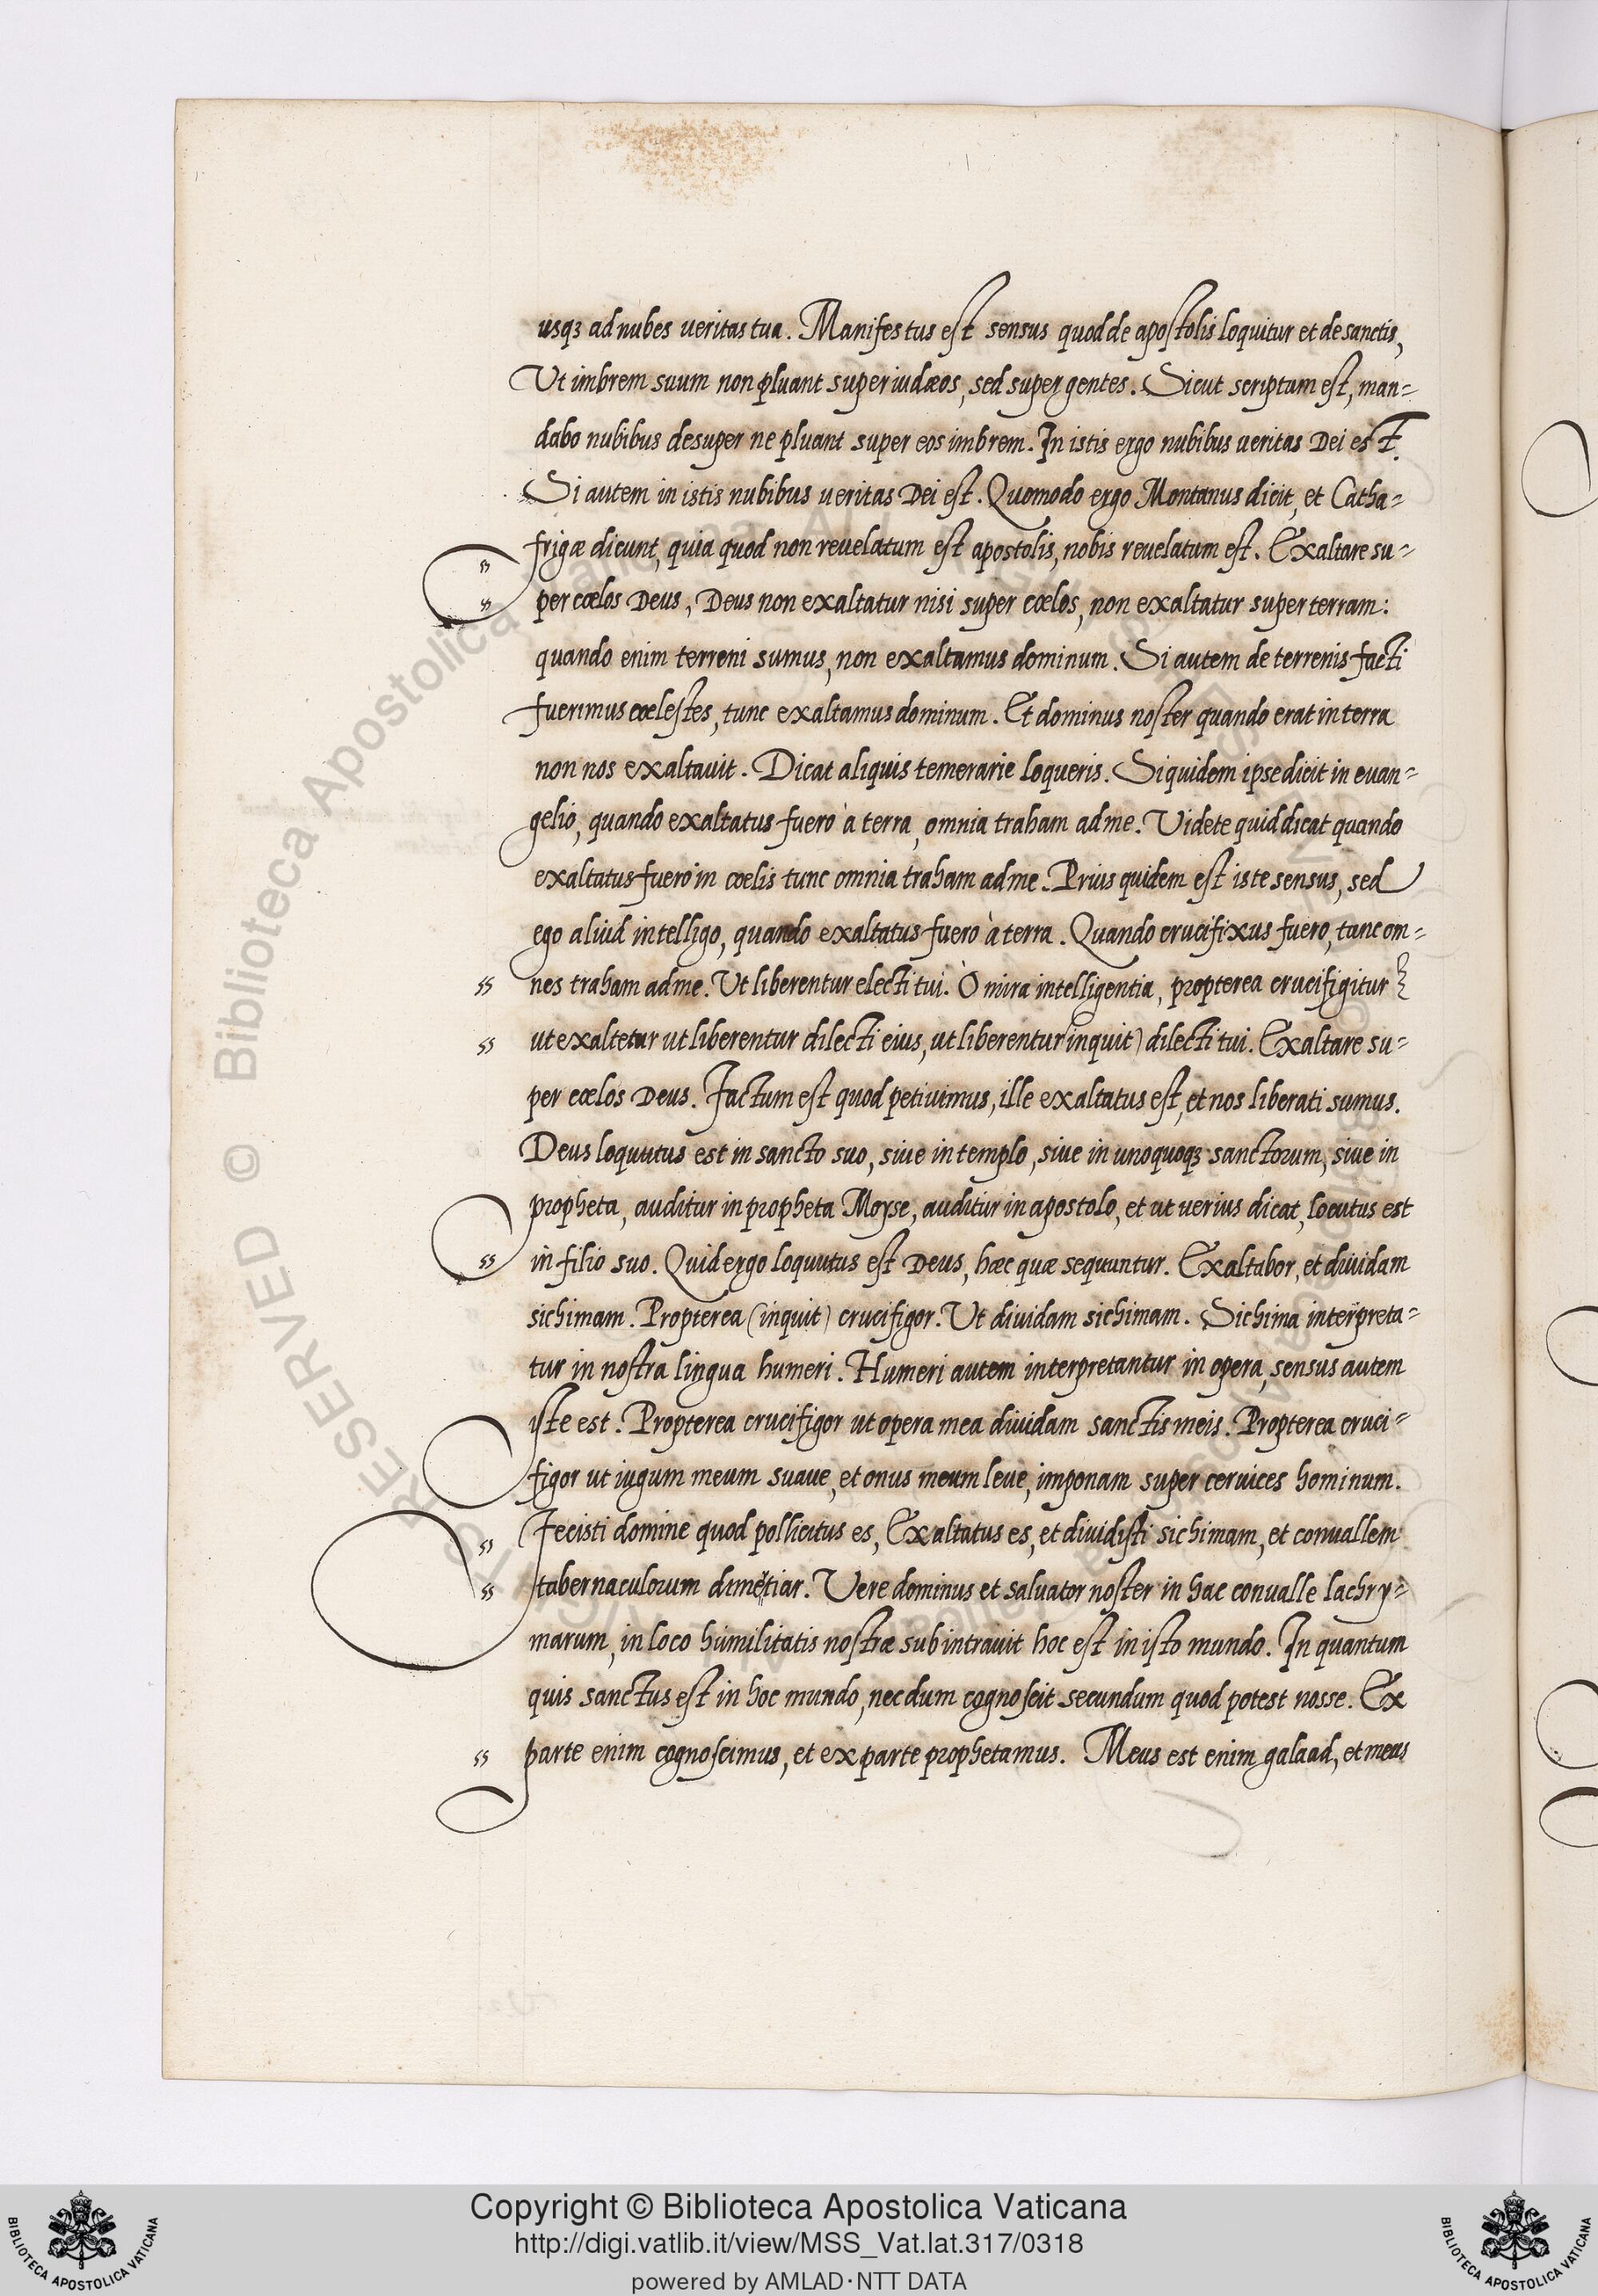 usqꝫ ad nubes veritas tua. Manifestus est sensus quod de apostolis loquitur et de sanctis,
Ut imbrem suum non pluant super iudæos, sed super gentes. Sicut scriptum est, man=
dabo nubibus desuper ne pluant super eos imbrem. In istis ergo nubibus veritas Dei est.
Si autem in istis nubibus veritas Dei est. Quomodo ergo Montanus dicit, et Catha=
frigæ dicunt, quia quod non revelatum est apostolis, nobis revelatum est. Exaltare su=
per cœlos Deus, Deus non exaltatur nisi super cœlos, non exaltatur super terram:
quando enim terreni sumus, non exaltamus dominum. Si autem de terrenis facti
fuerimus cœlestes, tunc exaltamus dominum. Et dominus noster quando erat in terra
non nos exaltavit. Dicat aliquis temerarie loqueris. Siquidem ipse dicit in evan=
gelio, quando exaltatus fuero à terra, omnia traham ad me. Videte quid dicat quando
exaltatus fuero in cœlis tunc omnia traham ad me. Prius quidem est iste sensus, sed
ego aliud intelligo, quando exaltatus fuero à terra. Quando crucifixus fuero, tunc om=
nes traham ad me. Ut liberentur electi tui. Ò mira intelligentia, propterea crucifigitur
ut exaltetur ut liberentur dilecti eius, ut liberentur inquit) dilecti tui. Exaltare su=
per cœlos Deus. Factum est quod petivimus, ille exaltatus est, et nos liberati sumus.
Deus loquutus est in sancto suo, sive in templo, sive in unoquoqꝫ sanctorum, sive in
propheta, auditur in propheta Moyse, auditur in apostolo, et ut verius dicat, locutus est
in filio suo. Quid ergo loquutus est Deus, hæc quæ sequuntur. Exaltabor, et dividam
sichimam. Propterea (inquit) crucifigor. Ut dividam sichimam. Sichima interpreta=
tur in nostra lingua humeri. Humeri autem interpretantur in opera, sensus autem
iste est. Propterea crucifigor ut opera mea dividam sanctis meis. Propterea cruci=
figor ut iugum meum suave, et onus meum leve, imponam super cervices hominum.
Fecisti domine quod pollicitus es, Exaltatus es, et dividisti sichimam, et convallem
tabernaculorum dimetiar. Vere dominus et salvator noster in hac convalle lachry=
marum, in loco humilitatis nostræ subintravit hoc est in isto mundo. In quantum
quis sanctus est in hoc mundo, nec dum cognoscit secundum quod potest nosse. Ex
parte enim cognoscimus, et ex parte prophetamus. Meus est enim galaad, et meus
© Biblioteca Apostolica
RESERVED
Copyright © Biblioteca Apostolica Vaticana
http://digi.vatlib.it/view/MSS_Vat.lat.317/0318
powered by AMLAD·NTT DATA
BIBLIOTECA APOSTOLICA VATICANA
BIBLIOTECA APOSTOLICA VATICANA